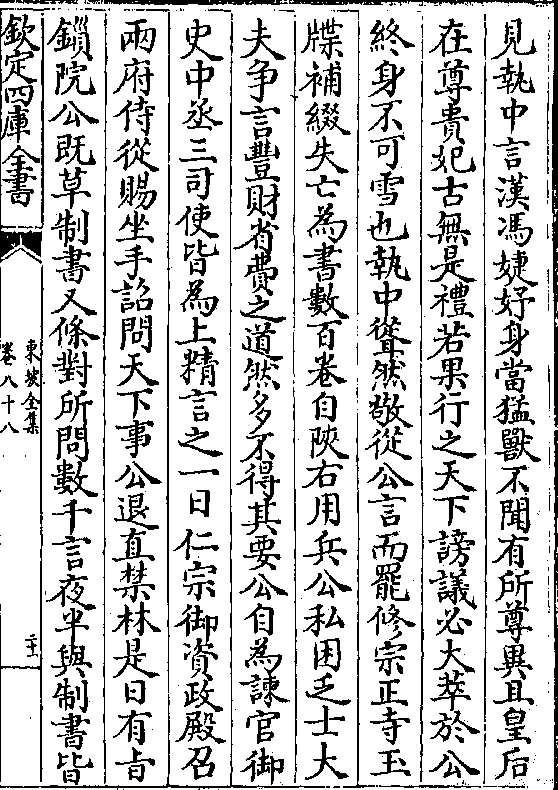 見執中言漢馮婕妤身當猛獸不聞有所尊異且皇后
在尊貴妃古無是禮若果行之天下謗議必大萃於公
終身不可雪也執中聳然敬從公言而罷修宗正寺玉
牒補綴失亡為書數百卷自陝右用兵公私困乏士大
夫争言豐財省費之道然多不得其要公自為諫官御
史中丞三司使皆為上精言之一日仁宗御資政殿召
兩府侍從賜坐手詔問天下事公退直禁林是日有旨
鎻院公既草制書又條對所問數千言夜半與制書皆
欽定四庫全書
東坡全集
卷八十八
二十一